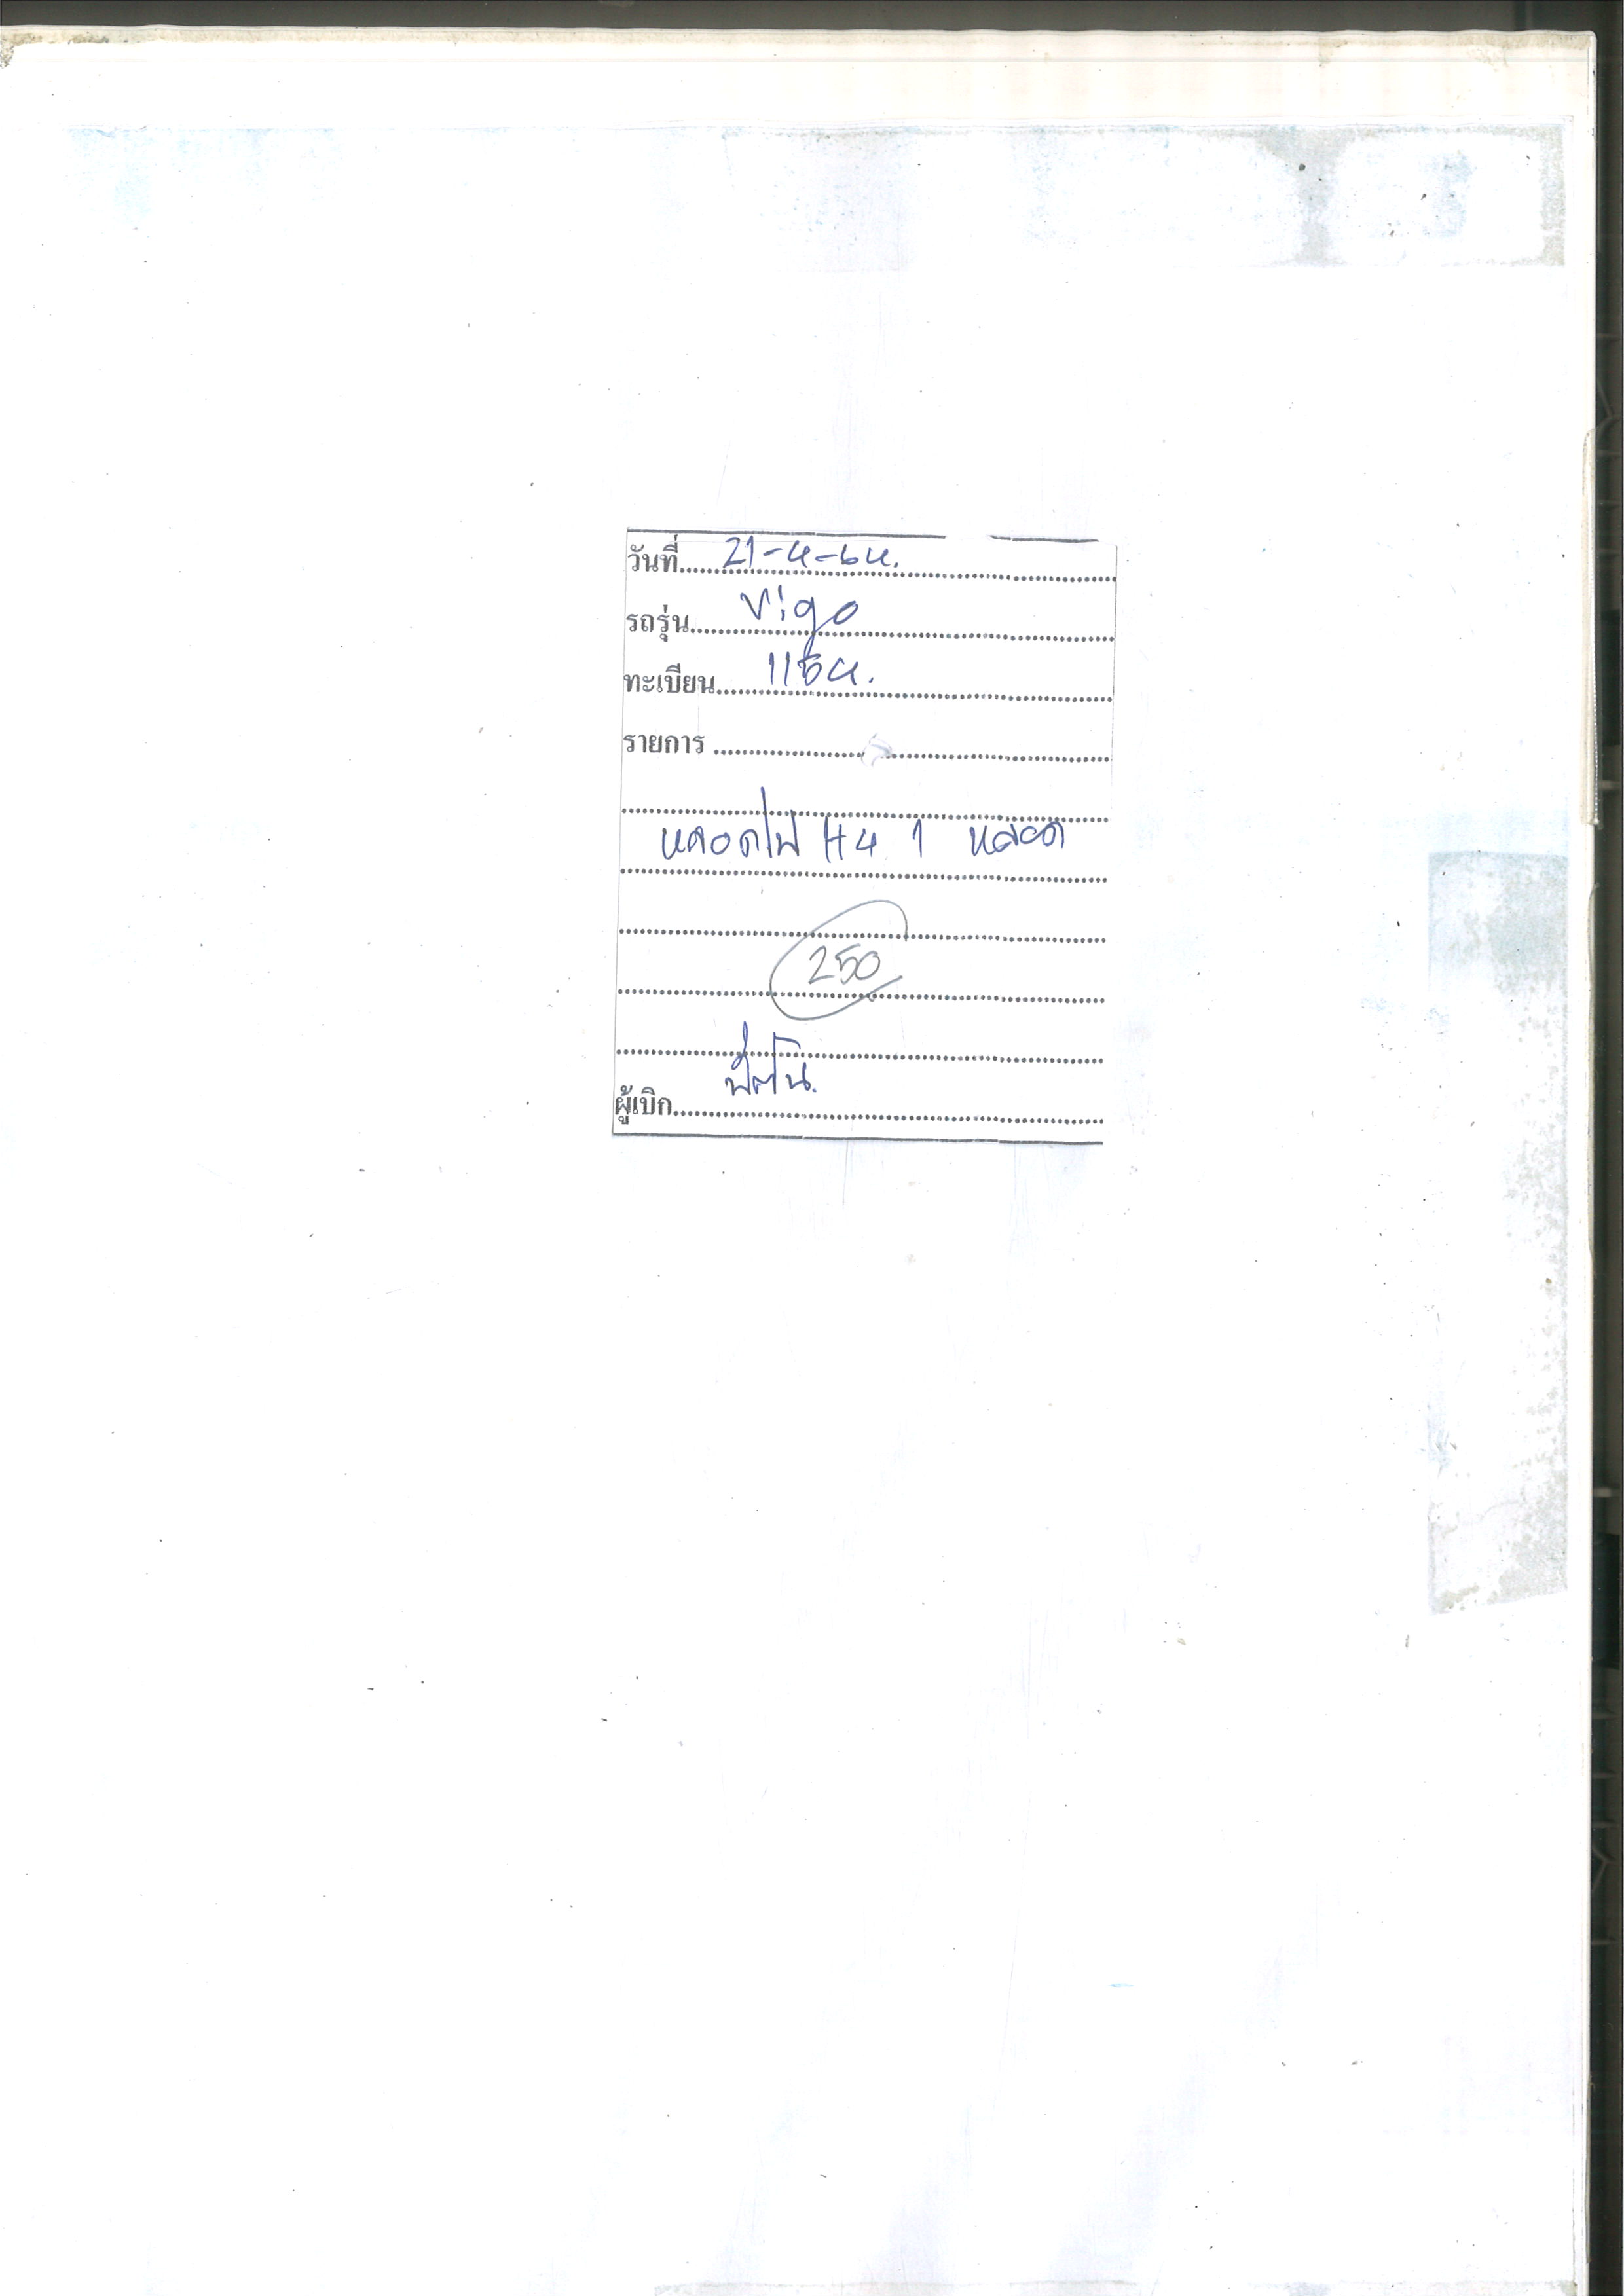 วันที่ 21-4-64.
รถรุ่น Vigo
ทะเบียน 1154.
รายการ
หลอดไฟ H4 1 หลอด
250
ผู้เบิก